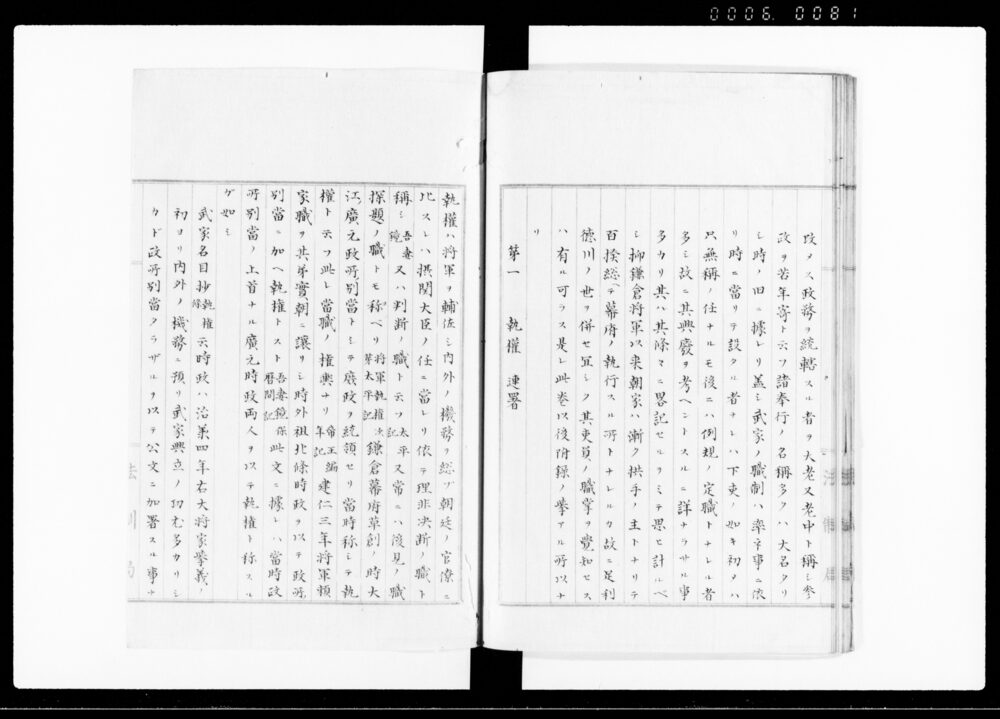 0006. 0081
改メス政務ヲ統轄スル者ヲ大老又老中ト稱シ参
政ヲ若年寄ト云フ諸奉行ノ名稱多クハ大名クリ
シ時ノ旧ニ據レリ蓋シ武家ノ職制ハ率子事ニ依
リ時ニ當リテ設クル者ナレハ下吏ノ如キ初メハ
只無稱ノ任ナルモ後ニハ例規ノ定職トナレル者
多シ故ニ其興廢ヲ考ヘントスルニ詳ナラサル事
多カリ其ハ其條々ニ畧記セルヲミテ思ヒ計ルベ
シ抑鎌倉將軍以来朝家ハ漸ク拱手ノ主トナリテ
百揆総ベテ幕府ノ執行スル所トナレルカ故ニ足利
徳川ノ世ヲ併セ宜シク其吏員ノ職掌ヲ覺知セス
ハ有ル可ラス是レ此巻以後附録ノ擧アル所以ナ
リ
第一 執權 連署
執權ハ将軍ヲ輔佐シ内外ノ機務ヲ総ブ朝廷ノ官僚ニ
比スレハ摂関大臣ノ任ニ當レリ依テ理非決断ノ職ト
稱シ吾妻鏡又ハ判断ノ職ト云フ太平記又常ニハ後見ノ職
探題ノ職トモ称ベリ将軍執權次第太平記鎌倉幕府草創ノ時大
江廣元政所別當トシテ庶政ヲ統領セリ當時称シテ執
權ト云フ此レ當職ノ權輿ナリ帝王編年記建仁三年將軍頼
家職ヲ其弟實朝ニ讓リシ時外祖北條時政ヲ以テ政所
別當ニ加ヘ執權トス吾妻鏡保暦間記此文ニ據レハ當時政
所別當ノ上首ナル廣元時政両人ヲ以テ執權ト称スル
ゲ如シ
武家名目抄執權條云時政ハ治承四年右大将家擧義ノ
初ヨリ内外ノ機務ニ預リ武家興立ノ功尤多カリシ
カド政所別當タラザルヲ以テ公文ニ加署スル事ナ
法制局